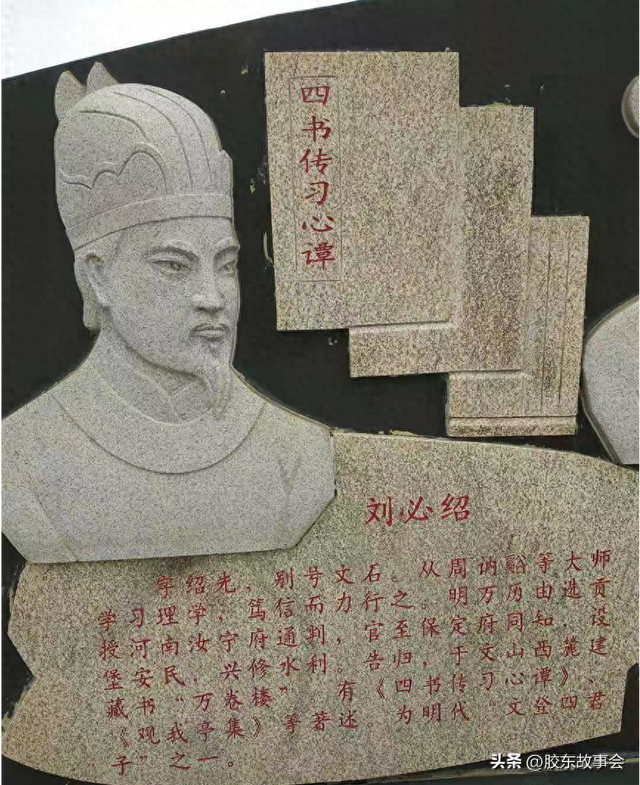 四书传习心谭
刘必绍
字绍先，别号文石。从周讷谿等大师
学习理学，笃信而力行之。明万历由选贡
授河南汝宁府通判，至官保定府同知．设
堡安民，兴修水利。告归于西山麓建
藏书“万卷楼”。有《四书传习心谭》、
《观我亭集》等著述，为明代文诠四君
子之一。
头条 @胶东故事会